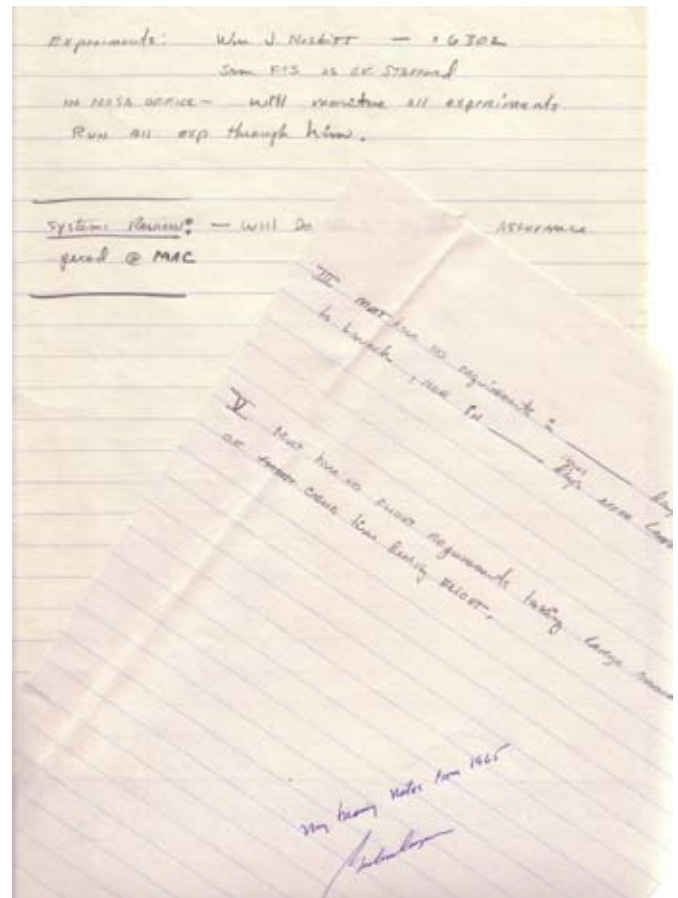 Experiments: Wm J. Nesbitt — x 6302
Same FTS as OF Stafford
IN NASA OFFICE — will monitor all experiments
RUN all exp through him.
Systems Review: — will Do
@ MAC
III MUST have no requirements
to launch, NOR IN days AFTER
V Must have no FLIGHT requirements taking large
OF CREWS time During FLIGHT.
My training notes from 1965